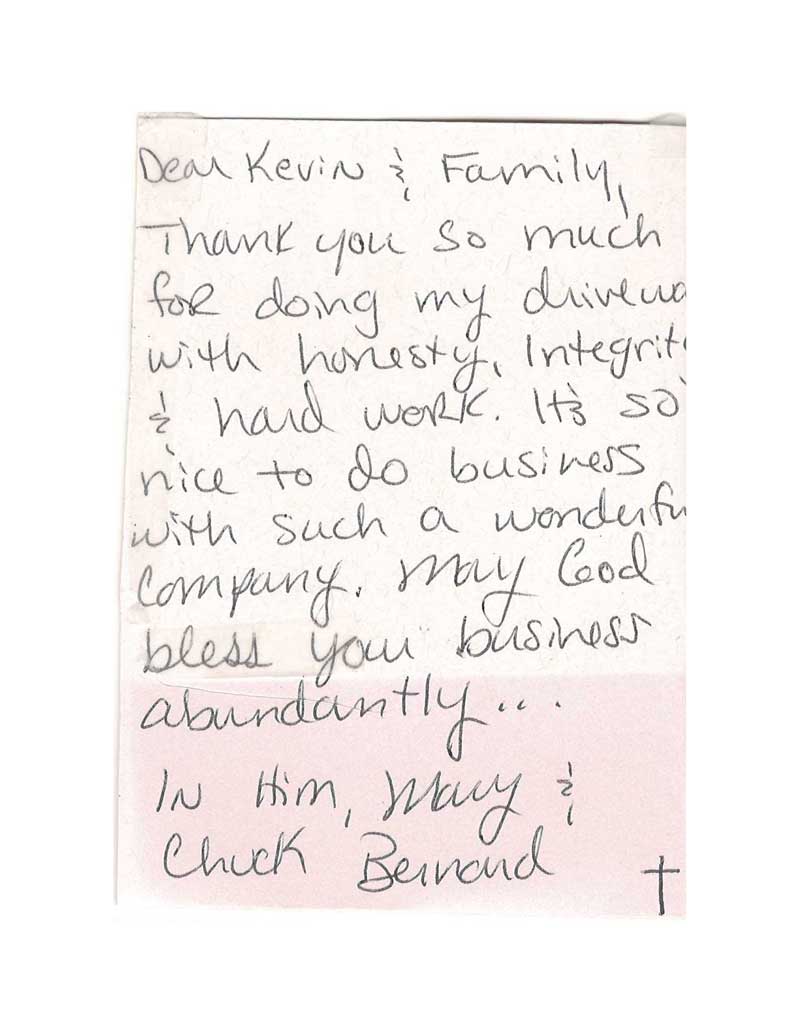 Dear Kevin & Family,
Thank you so much
for doing my drivewa
with honesty, Integrit
& hard work. It's so
nice to do business
with such a wonderfu
company. May God
bless your business
abundantly...
In Him, Mary &
Chuck Bernard